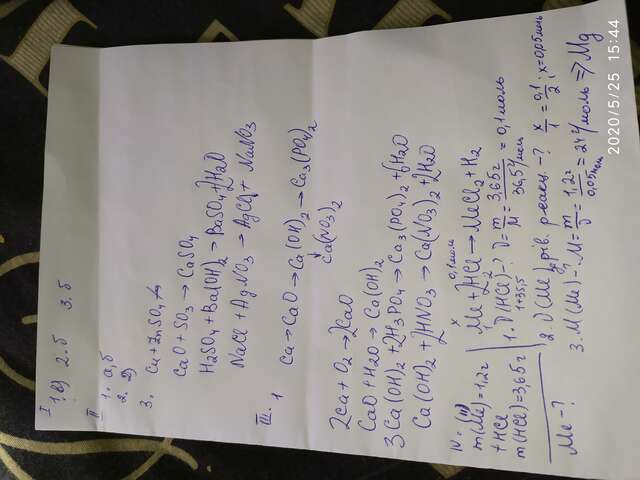 I
1. в) 2. б 3. б
II 1. а, б
2. Д)
3. Cu + ZnSO4
CaO + SO3 → CaSO4
H2SO4 + Ba(OH)2 → BaSO4 + 2H2O
NaCl + AgNO3 → AgCl + NaNO3
III. 1 Ca → CaO → Ca(OH)2 → Ca3(PO4)2
↓
Ca(NO3)2
2Ca + O2 → 2CaO
CaO + H2O → Ca(OH)2
3Ca(OH)2 + 2H3PO4 → Ca3(PO4)2 + 6H2O
Ca(OH)2 + 2HNO3 → Ca(NO3)2 + 2H2O
IV.
m(Me) = 1,2г
+ HCl
m(HCl) = 3,65г
Me - ?
x 0,1моль
Me + 2HCl → MeCl2 + H2
1 2
1. ν(HCl) - ? ν = m/M = 3,65г / 36,5г/моль = 0,1моль
1+35,5
2. ν(Me) за рів. реакц - ? x/1 = 0,1/2 ; x = 0,05моль
3. M(Me) - ? M = m/ν = 1,2г / 0,05моль = 24г/моль ⇒ Mg
2020/5/25 15:44